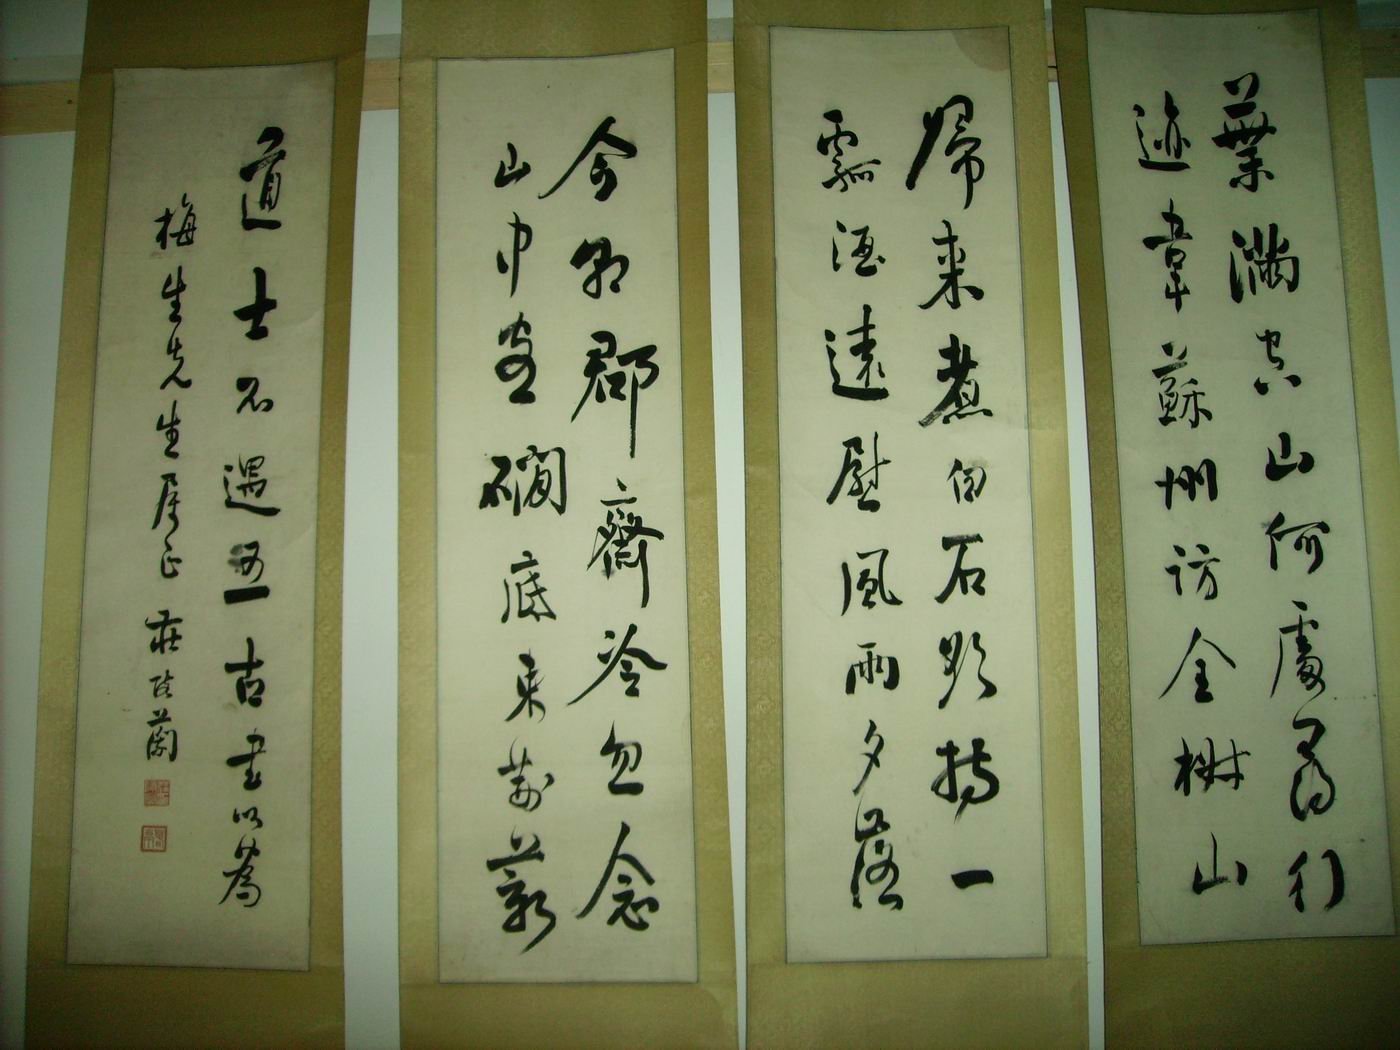 今朝郡齋冷忽念
山中客磵底束荊薪
歸來煮白石欲持一
瓢酒遠慰風雨夕落
葉滿空山何處尋行
迹韋蘇州訪全椒山
道士不遇五古書以為
梅生先生屬正 莊陔蘭